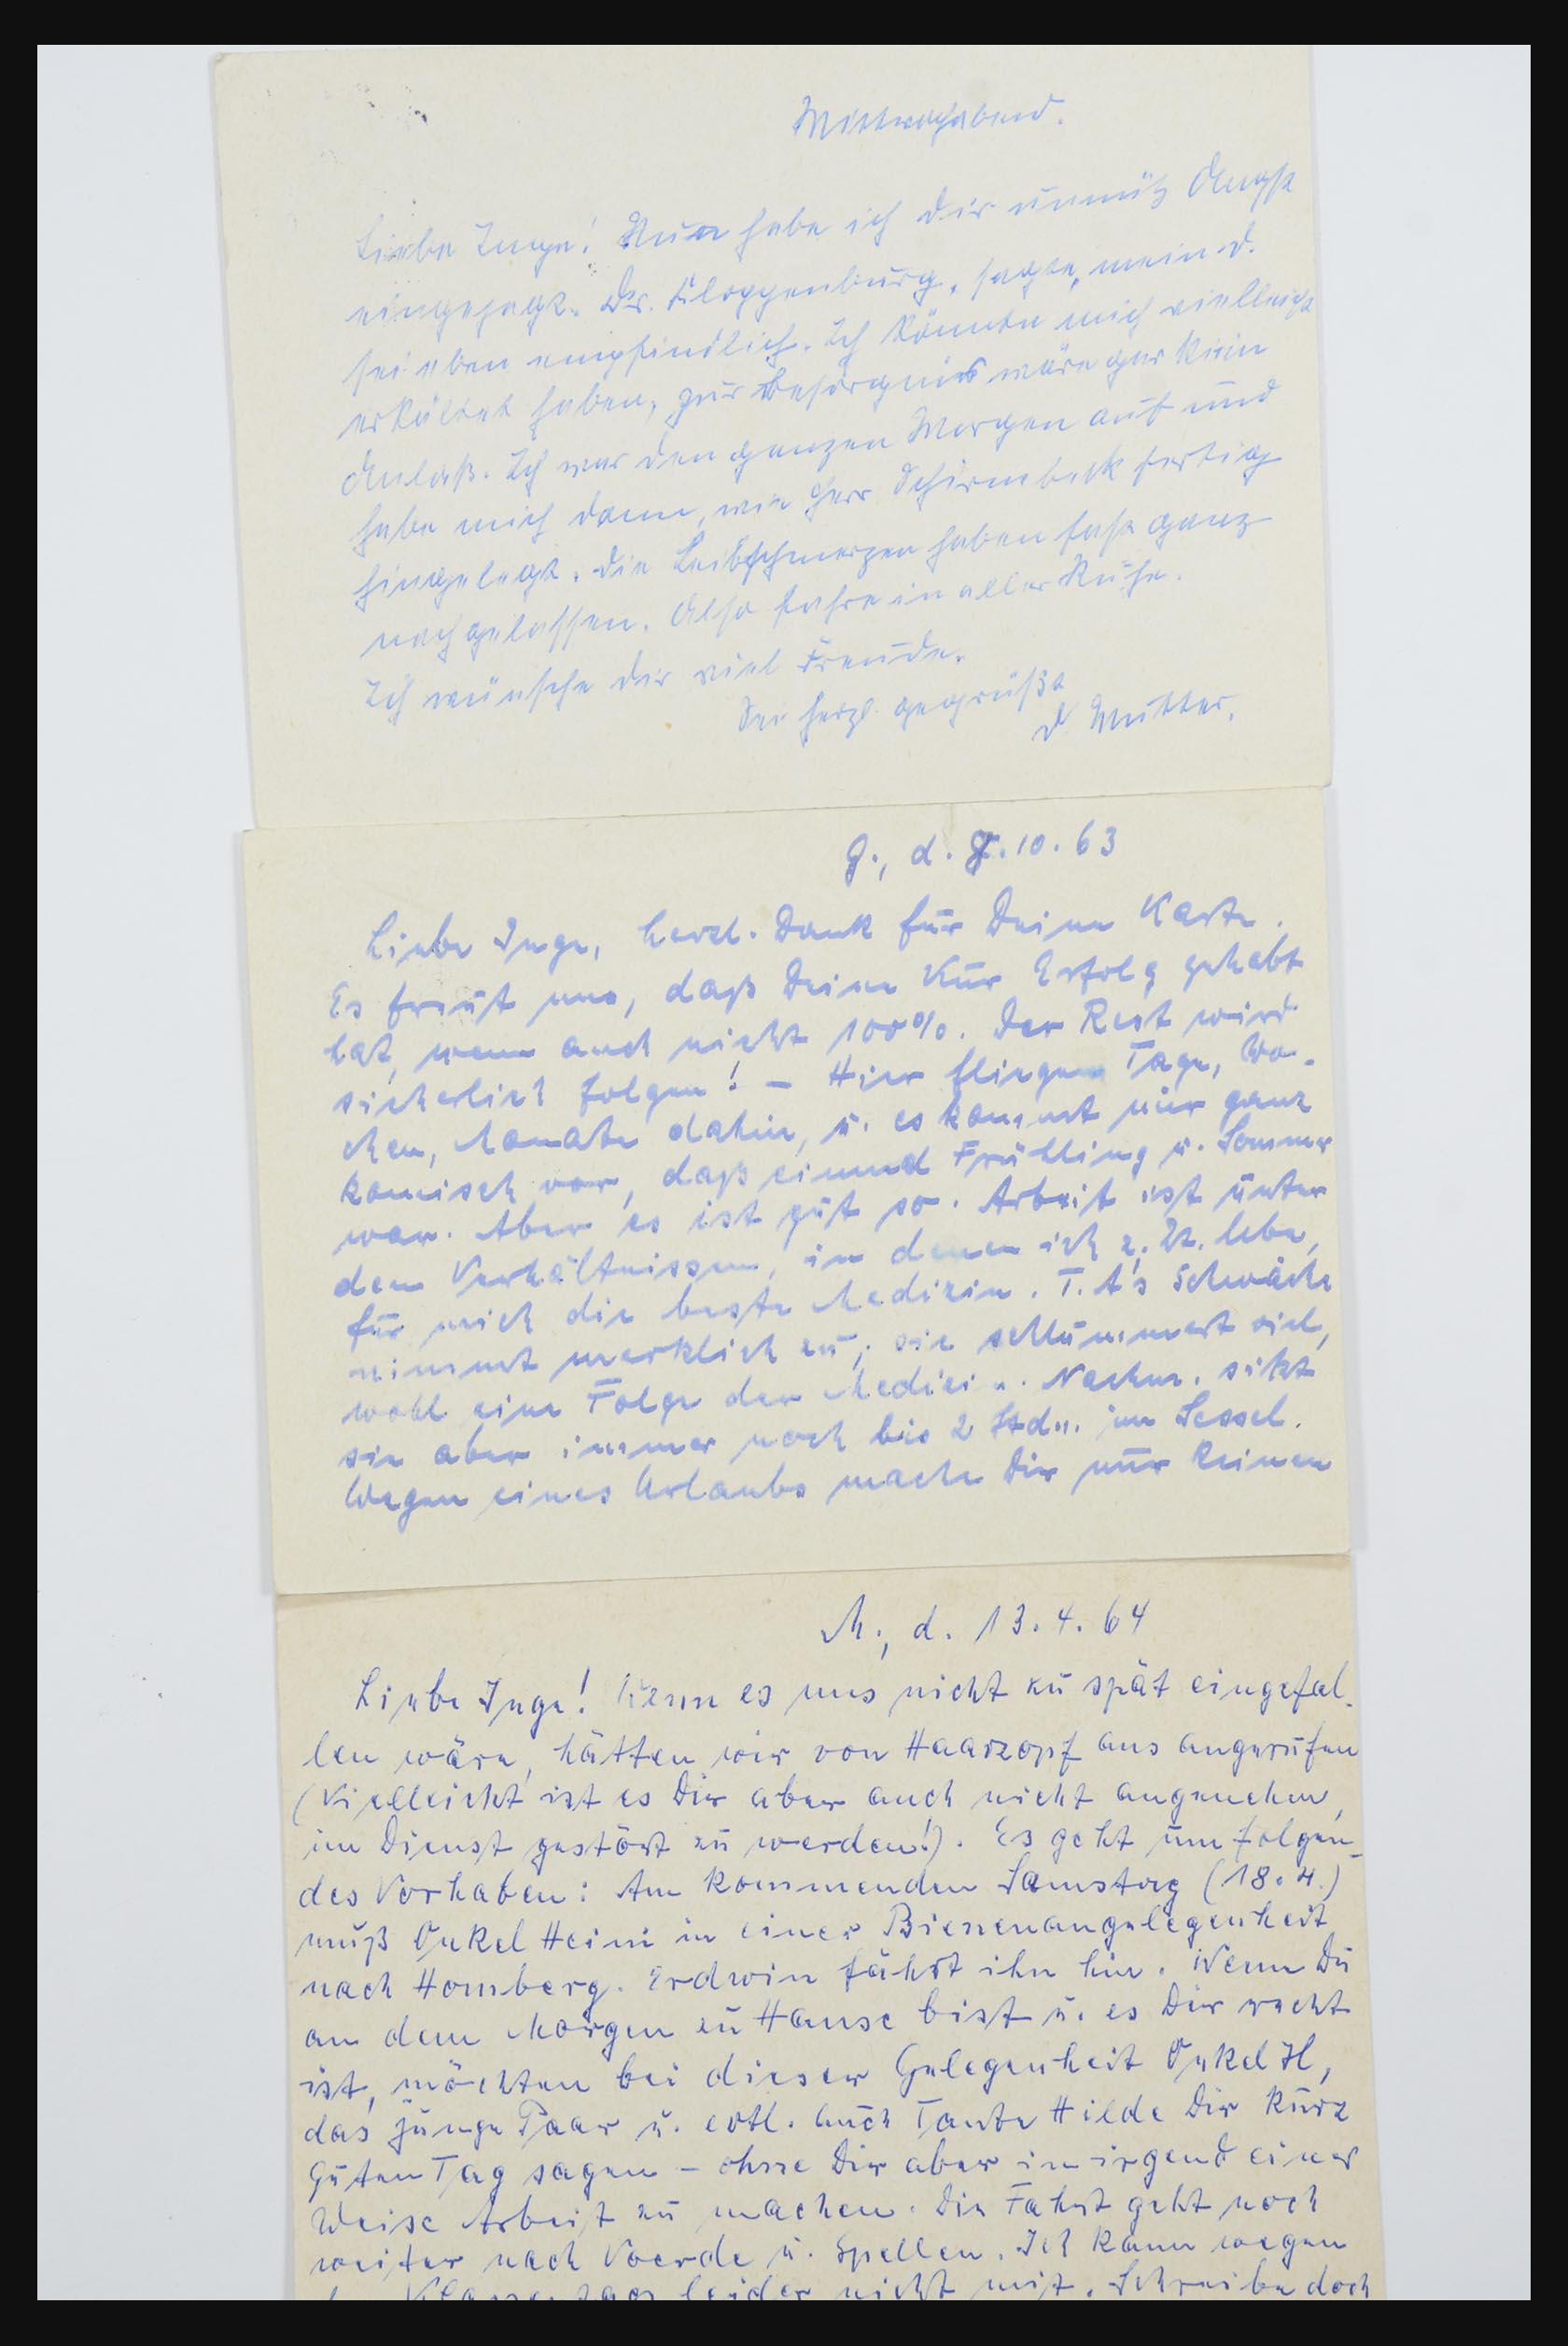 Mittwochabend.
Liebe Inge! Nun habe ich Dir unnütz Angst
eingejagt. Dr. Kloppenburg, sagte, mein d.
sei eben empfindlich. Ich könnte mich vielleicht
erkältet haben, zur Besorgnis wäre gar kein
Anlaß. Ich war den ganzen Morgen auf und
habe mich dann, wie Herr Schirmbeck fertig
hingelegt. Die Leibschmerzen haben fast ganz
nachgelassen. Also fahre in aller Ruhe.
Ich wünsche Dir viel Freude.
Sei herzl. gegrüßt
d Mutter.
G., d. 8.10.63
Liebe Inge, herzl. Dank für Deine Karte.
Es freut uns, daß Deine Kur Erfolg gehabt
hat, wenn auch nicht 100%. Der Rest wird
sicherlich folgen! – Hier fliegen Tage, Wo-
chen, Monate dahin, u. es kommt mir ganz
komisch vor, daß einmal Frühling u. Sommer
war. Aber es ist gut so. Arbeit ist unter
den Verhältnissen, in denen ich z. Zt. lebe,
für mich die beste Medizin. T. A's Schwäche
nimmt merklich zu; sie schlummert viel,
wohl eine Folge der Medizin. Nachm. sitzt
sie aber immer noch bis 2 Stdn. im Sessel.
Wegen eines Urlaubs mache Dir nur keinen
M., d. 13.4.64
Liebe Inge! Wenn es uns nicht zu spät eingefal-
len wäre, hätten wir von Haarzopf aus angerufen
(Vielleicht ist es Dir aber auch nicht angenehm,
im Dienst gestört zu werden!). Es geht um folgen-
des Vorhaben: Am kommenden Samstag (18.4.)
muß Onkel Heini in einer Bienenangelegenheit
nach Homberg. Erdwin fährt ihn hin. Wenn Du
an dem Morgen zu Hause bist u. es Dir recht
ist, möchten bei dieser Gelegenheit Onkel H,
das junge Paar u. evtl. auch Tante Hilde Dir kurz
Guten Tag sagen – ohne Dir aber in irgend einer
Weise Arbeit zu machen. Die Fahrt geht noch
weiter nach Voerde u. Spellen. Ich kann wegen
leider nicht mit. Schreibe doch